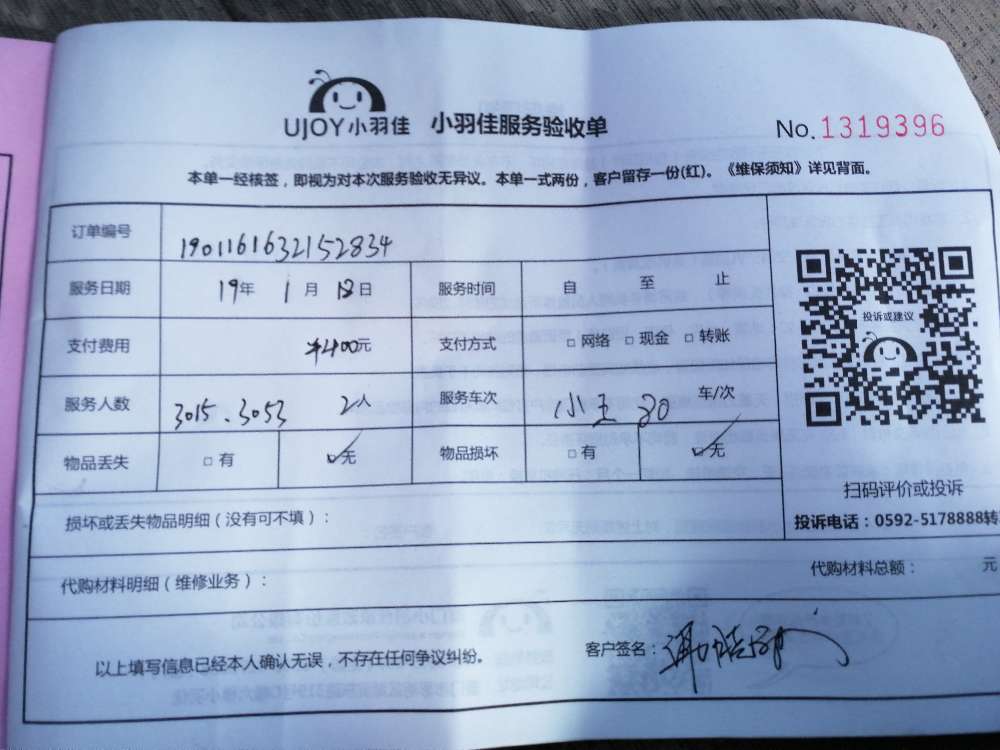 UJOY小羽佳 小羽佳服务验收单 No.1319396
本单一经核签，即视为对本次服务验收无异议。本单一式两份，客户留存一份(红)。《维保须知》详见背面。
订单编号 1901161632152834
服务日期 19年 1月 18日 服务时间 自 至 止
支付费用 ¥400元 支付方式 □网络 □现金 □转账
服务人数 3015.3053 2人 服务车次 小王 80 车/次
物品丢失 □有 ☑无 物品损坏 □有 ☑无
投诉或建议
扫码评价或投诉
投诉电话：0592-5178888转
损坏或丢失物品明细（没有可不填）：
代购材料明细（维修业务）： 代购材料总额： 元
以上填写信息已经本人确认无误，不存在任何争议纠纷。 客户签名：